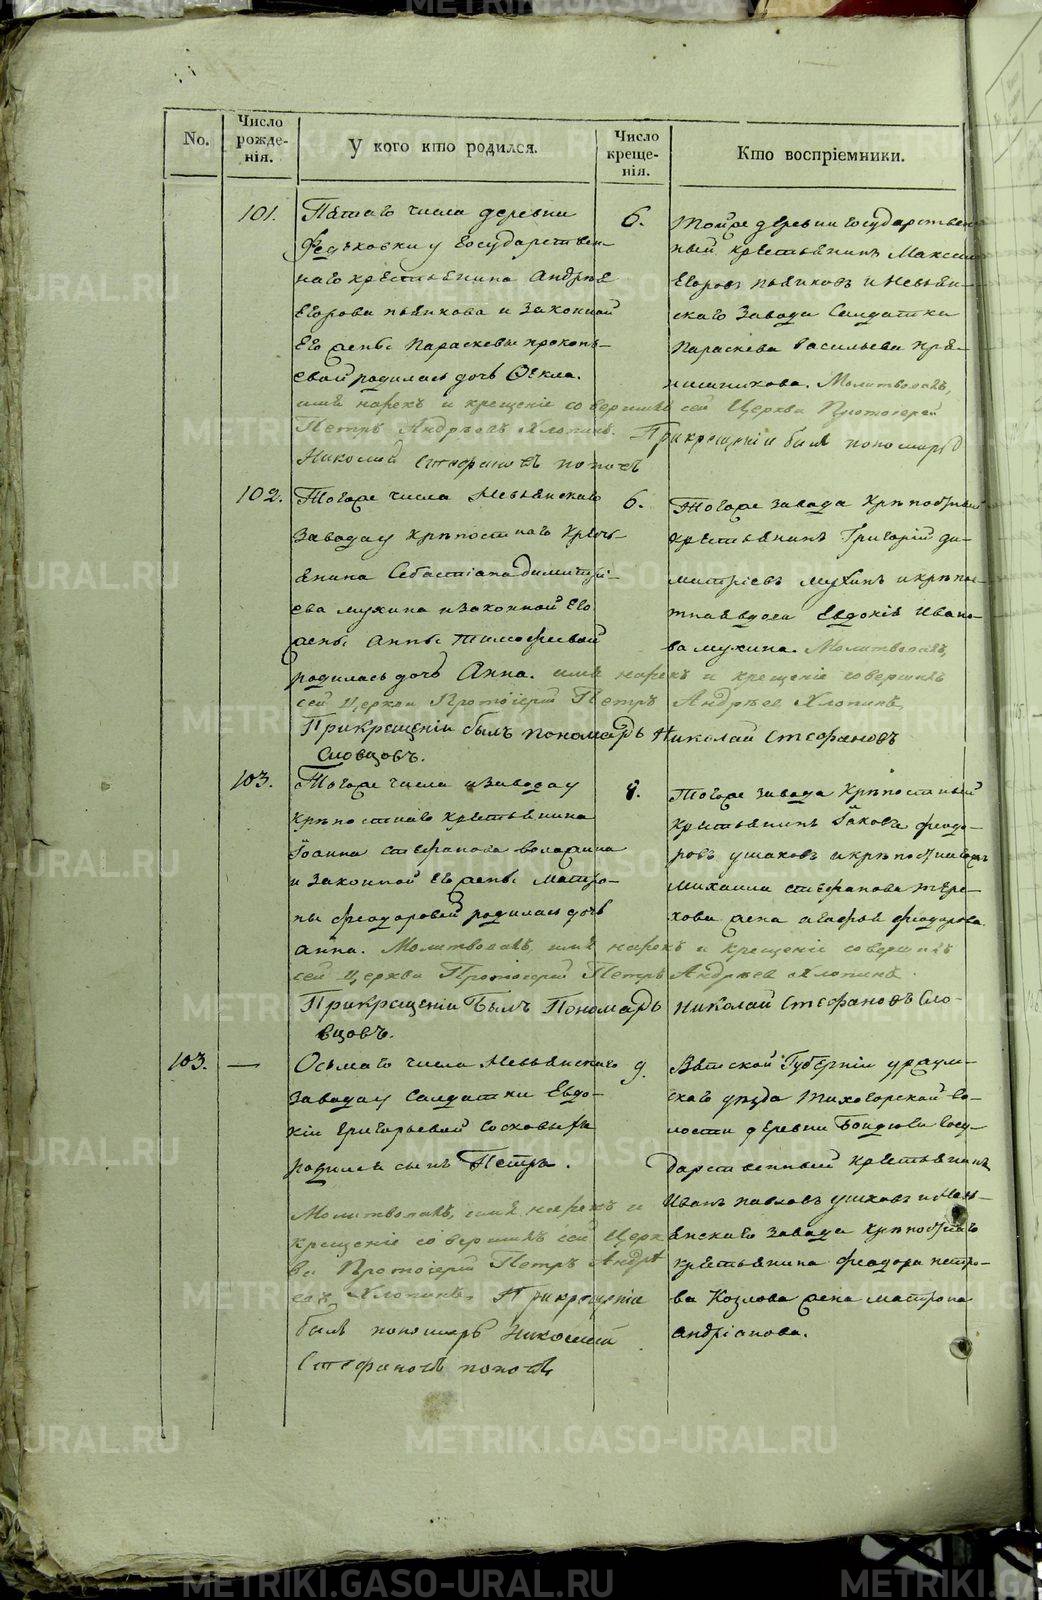 No.
Число рожде-
нія.
У кого кто родился.
Число креще-
нія.
Кто воспріемники.
101.
Пятаго числа деревни
Федьковки у Государствен-
наго крестьянина Андрея
Егорова пьянкова и законной
Его жены Параскевы прокопь-
евой родилась дочь Фекла.
имя нарекъ и крещеніе совершилъ сей Церкви Протоіерей
Петръ Андреевъ Хлопинъ. При крещеніи былъ пономарь
Николай Стефановъ поповъ
6.
Той же деревни Государствен-
ный крестьянинъ Максим
Егоровъ пьянковъ и Невьян-
скаго Завода Салдатка
Параскева Васильева
Молитвовалъ,
102.
Того же числа Невьянскаго
Завода у крѣпостнаго кресть-
янина Себастіана димитрі-
ева мухина и законной Его
жены Анны тимофеевой
родилась дочь Анна. имя нарекъ и крещеніе совершилъ
сей Церкви Протоіерей Петръ Андреевъ Хлопинъ,
При крещеніи былъ пономарь Николай Стефановъ
Словцовъ.
6.
Того же завода Крѣпостный
крестьянинъ Григорій ди-
митріевъ мухинъ и крѣпос-
тная вдова Евдокія Ивано-
ва мухина. Молитвовалъ,
103.
Того же числа и Завода у
крѣпостнаго крестьянина
Іоанна стефанова воложина
и законной Его жены матро-
ны феодоровой родилась дочь
анна. Молитвовалъ, имя нарекъ и крещеніе совершилъ
сей Церкви Протоіерей Петръ Андреевъ Хлопинъ.
При крещеніи былъ Пономарь Николай Стефановъ Сло-
вцовъ.
8.
Того же завода Крѣпостный
крестьянинъ Іаковъ феодо-
ровъ ушаковъ и крѣпостнаго
михаила стефанова тере-
хова жена агафья феодорова.
103.
—
Осьмаго числа Невьянскаго
Завода у Салдатки Евдо-
кіи григорьевой
родился сынъ Петръ.
Молитвовалъ, имя нарекъ и
крещеніе совершилъ сей Церк
ви Протоіерей Петръ Андре
евъ Хлопинъ. При крещеніи
былъ пономарь Николай
Стефановъ поповъ,
9.
Вятской Губерніи уржум-
скаго уѣзда Тихогорской Во-
лости деревни Бондюги Госу-
дарственный крестьянинъ
Иванъ павловъ ушковъ и Невь-
янскаго завода крѣпостнаго
крестьянина феодора петро-
ва Козлова жена матрона
андріанова.
METRIKI.GASO-URAL.RU